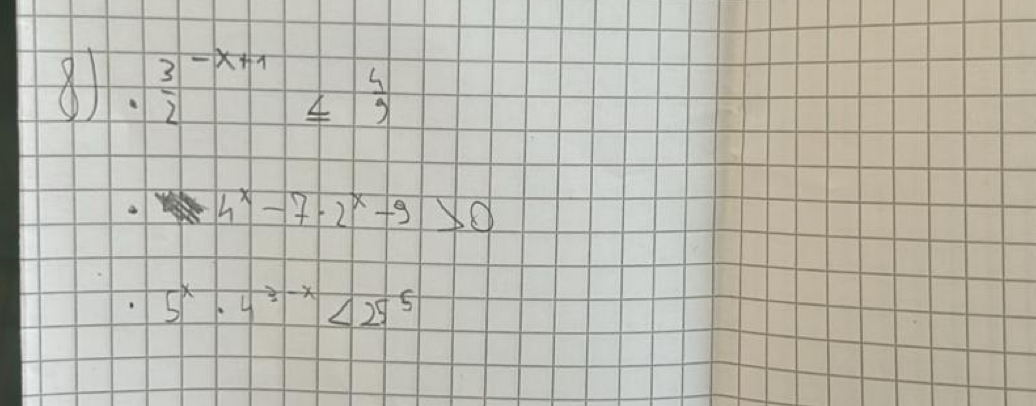 8) · 3/2 ^ -x+1 ≤ 4/9
· 4^x - 7 · 2^x - 9 > 0
· 5^x · 4^3-x < 25^5